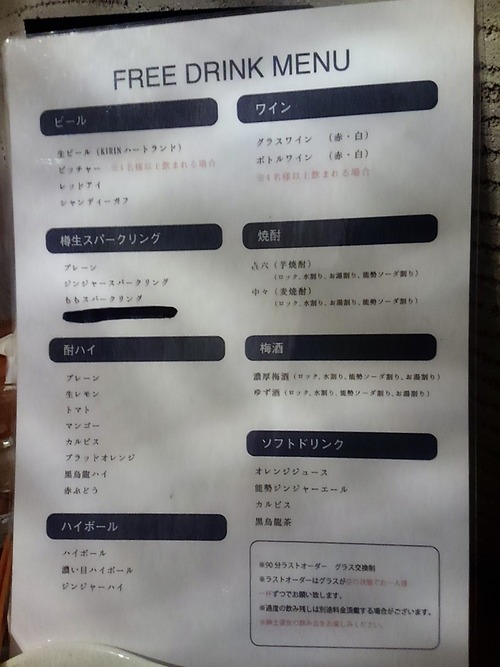 FREE DRINK MENU
ビール
生ビール (KIRIN ハートランド)
ピッチャー ※4名様以上飲まれる場合
レッドアイ
シャンディーガフ
樽生スパークリング
プレーン
ジンジャースパークリング
ももスパークリング
酎ハイ
プレーン
生レモン
トマト
マンゴー
カルピス
ブラッドオレンジ
黒烏龍ハイ
赤ぶどう
ハイボール
ハイボール
濃い目ハイボール
ジンジャーハイ
ワイン
グラスワイン (赤・白)
ボトルワイン (赤・白)
※4名様以上飲まれる場合
焼酎
㐂六 (芋焼酎)
(ロック、水割り、お湯割り、能勢ソーダ割り)
中々 (麦焼酎)
(ロック、水割り、お湯割り、能勢ソーダ割り)
梅酒
濃厚梅酒 (ロック、水割り、能勢ソーダ割り、お湯割り)
ゆず酒 (ロック、水割り、能勢ソーダ割り、お湯割り)
ソフトドリンク
オレンジジュース
能勢ジンジャーエール
カルピス
黒烏龍茶
※90分ラストオーダー グラス交換制
※ラストオーダーはグラスが空の状態でお一人様
一杯ずつでお願い致します。
※過度の飲み残しは別途料金頂戴する場合がございます。